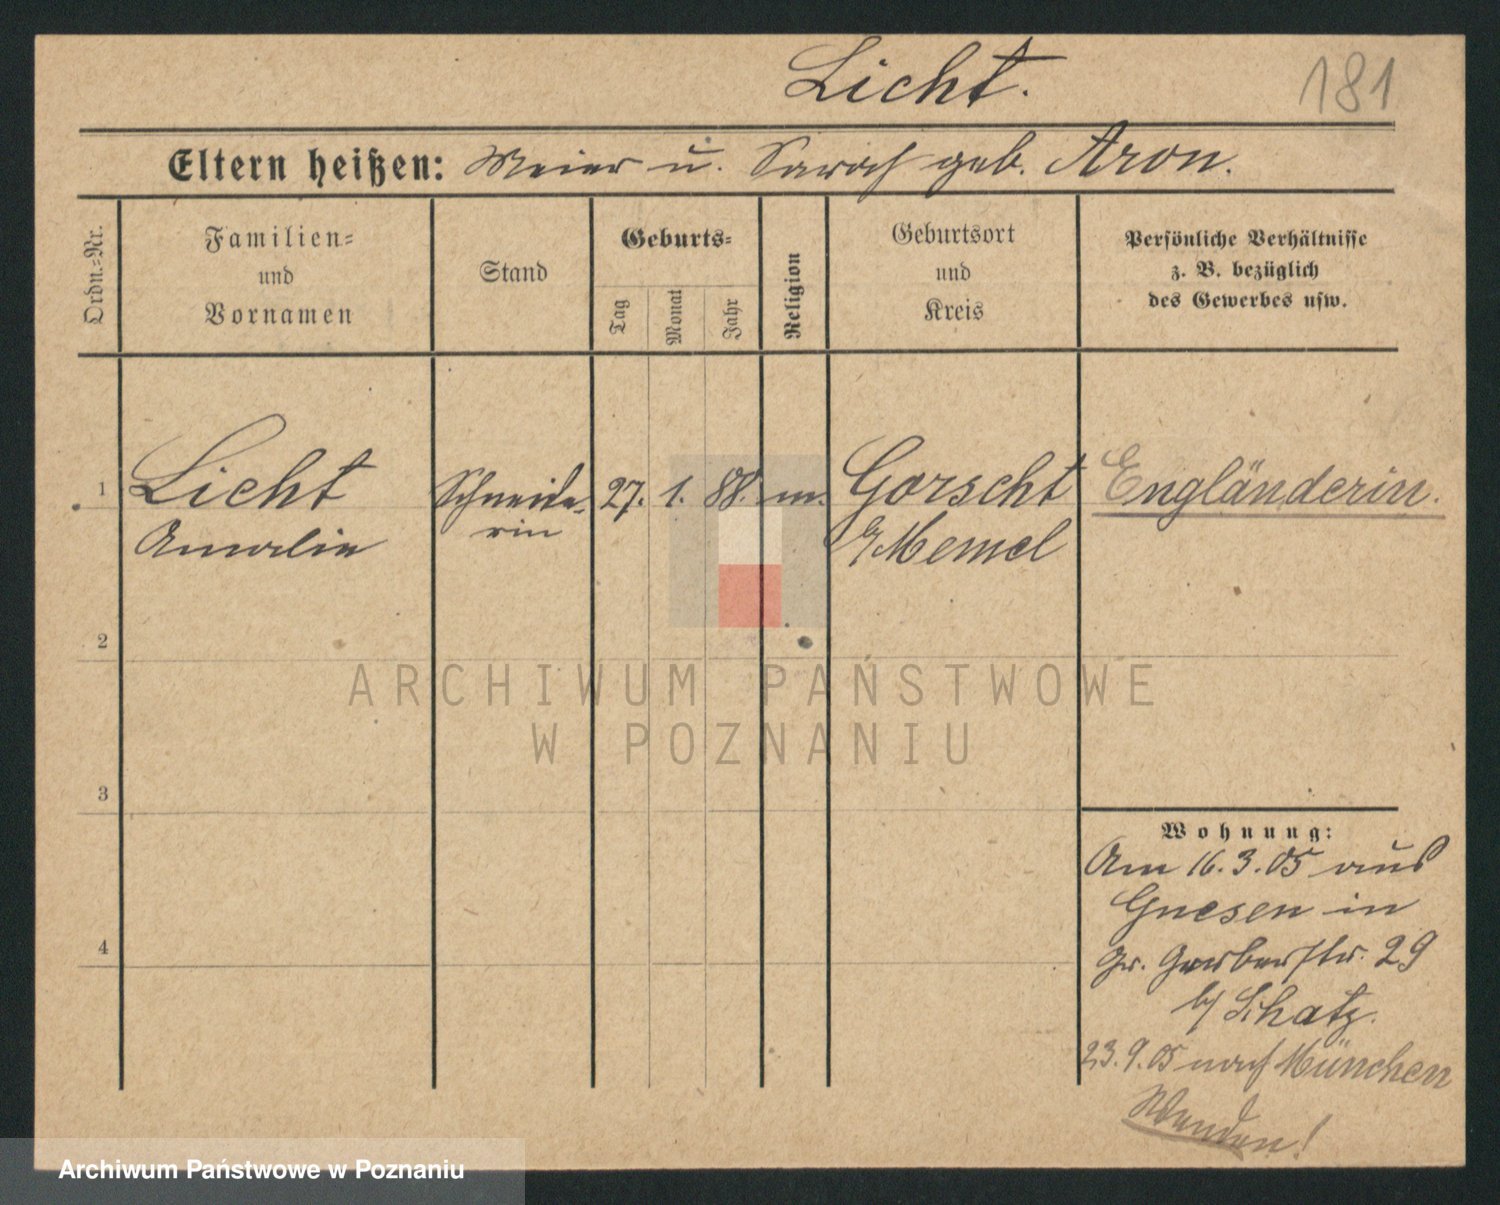 Licht.
181
Eltern heißen: Meier u. Sarah geb. Aron.
Ordn.-Nr.
Familien-
und
Vornamen
Stand
Geburts-
Tag
Monat
Jahr
Religion
Geburtsort
und
Kreis
Persönliche Verhältnisse
z. B. bezüglich
des Gewerbes usw.
1 Licht Schneide- 27. 1. 88. m. Gorscht Engländerin.
Amalie rin Memel
2
3
4
Wohnung:
Am 16.3.05 aus
Gnesen in
Gr. Gerberstr. 29
b/ Schatz.
23.9.05 nach München
Wenden!
ARCHIWUM PAŃSTWOWE
W POZNANIU
Archiwum Państwowe w Poznaniu